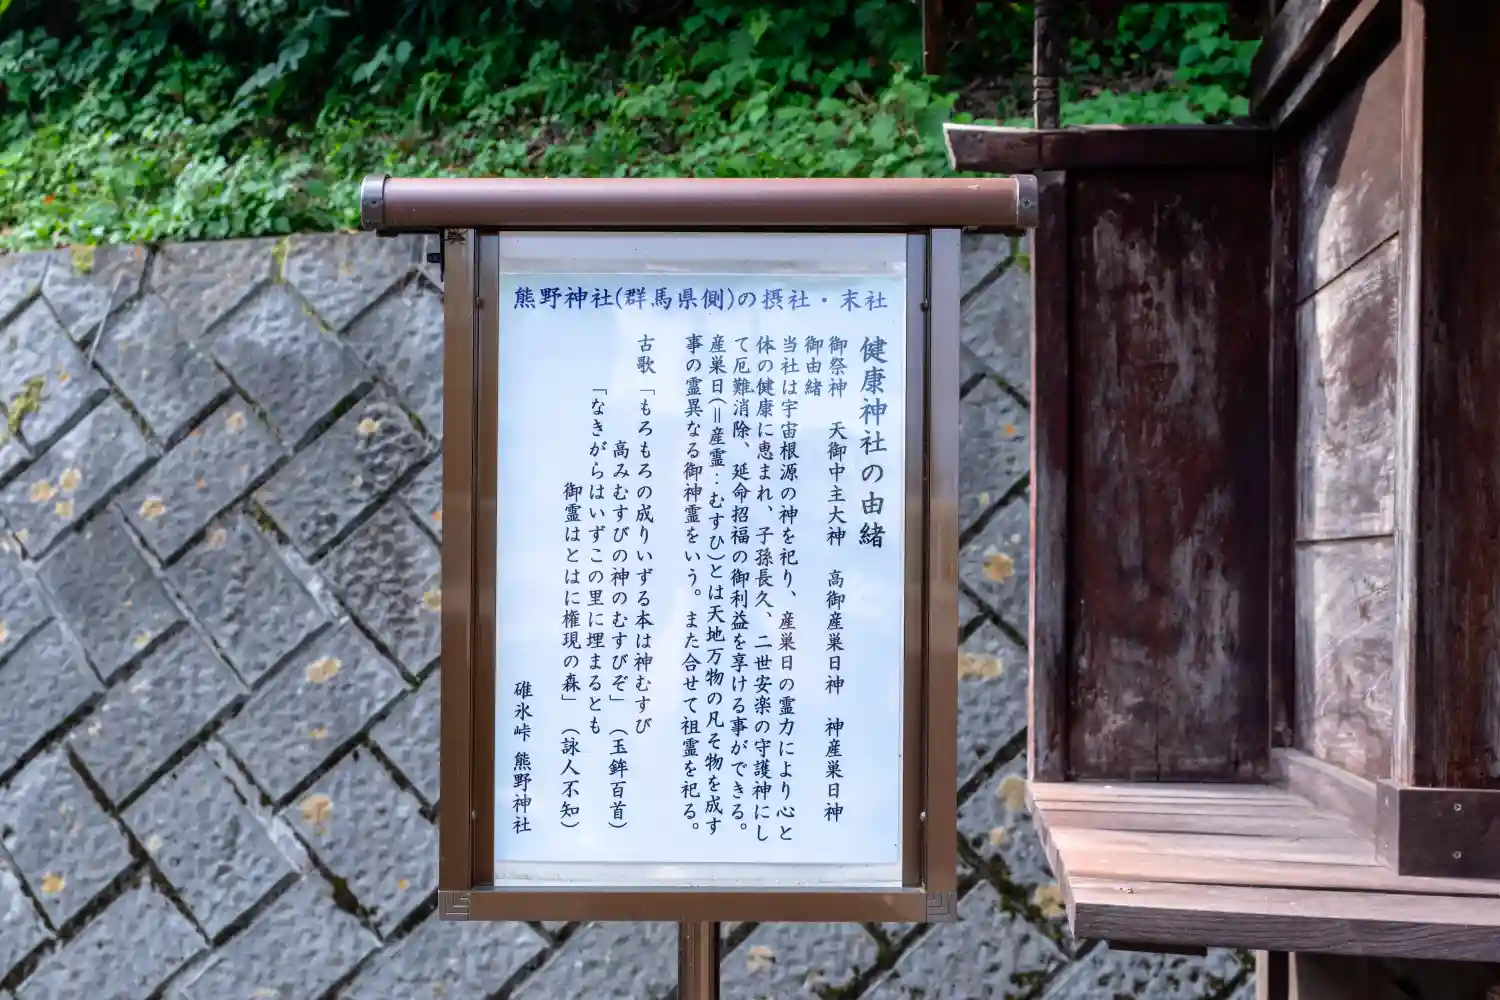 熊野神社(群馬県側)の摂社・末社
健康神社の由緒
御祭神　天御中主大神　高御産巣日神　神産巣日神
御由緒
当社は宇宙根源の神を祀り、産巣日の霊力により心と
体の健康に恵まれ、子孫長久、二世安楽の守護神にし
て厄難消除、延命招福の御利益を享ける事ができる。
産巣日(＝産霊：むすひ)とは天地万物の凡そ物を成す
事の霊異なる御神霊をいう。また合せて祖霊を祀る。
古歌「もろもろの成りいずる本は神むすび
高みむすびの神のむすびぞ」（玉鉾百首）
「なきがらはいずこの里に埋まるとも
御霊はとはに権現の森」（詠人不知）
碓氷峠 熊野神社